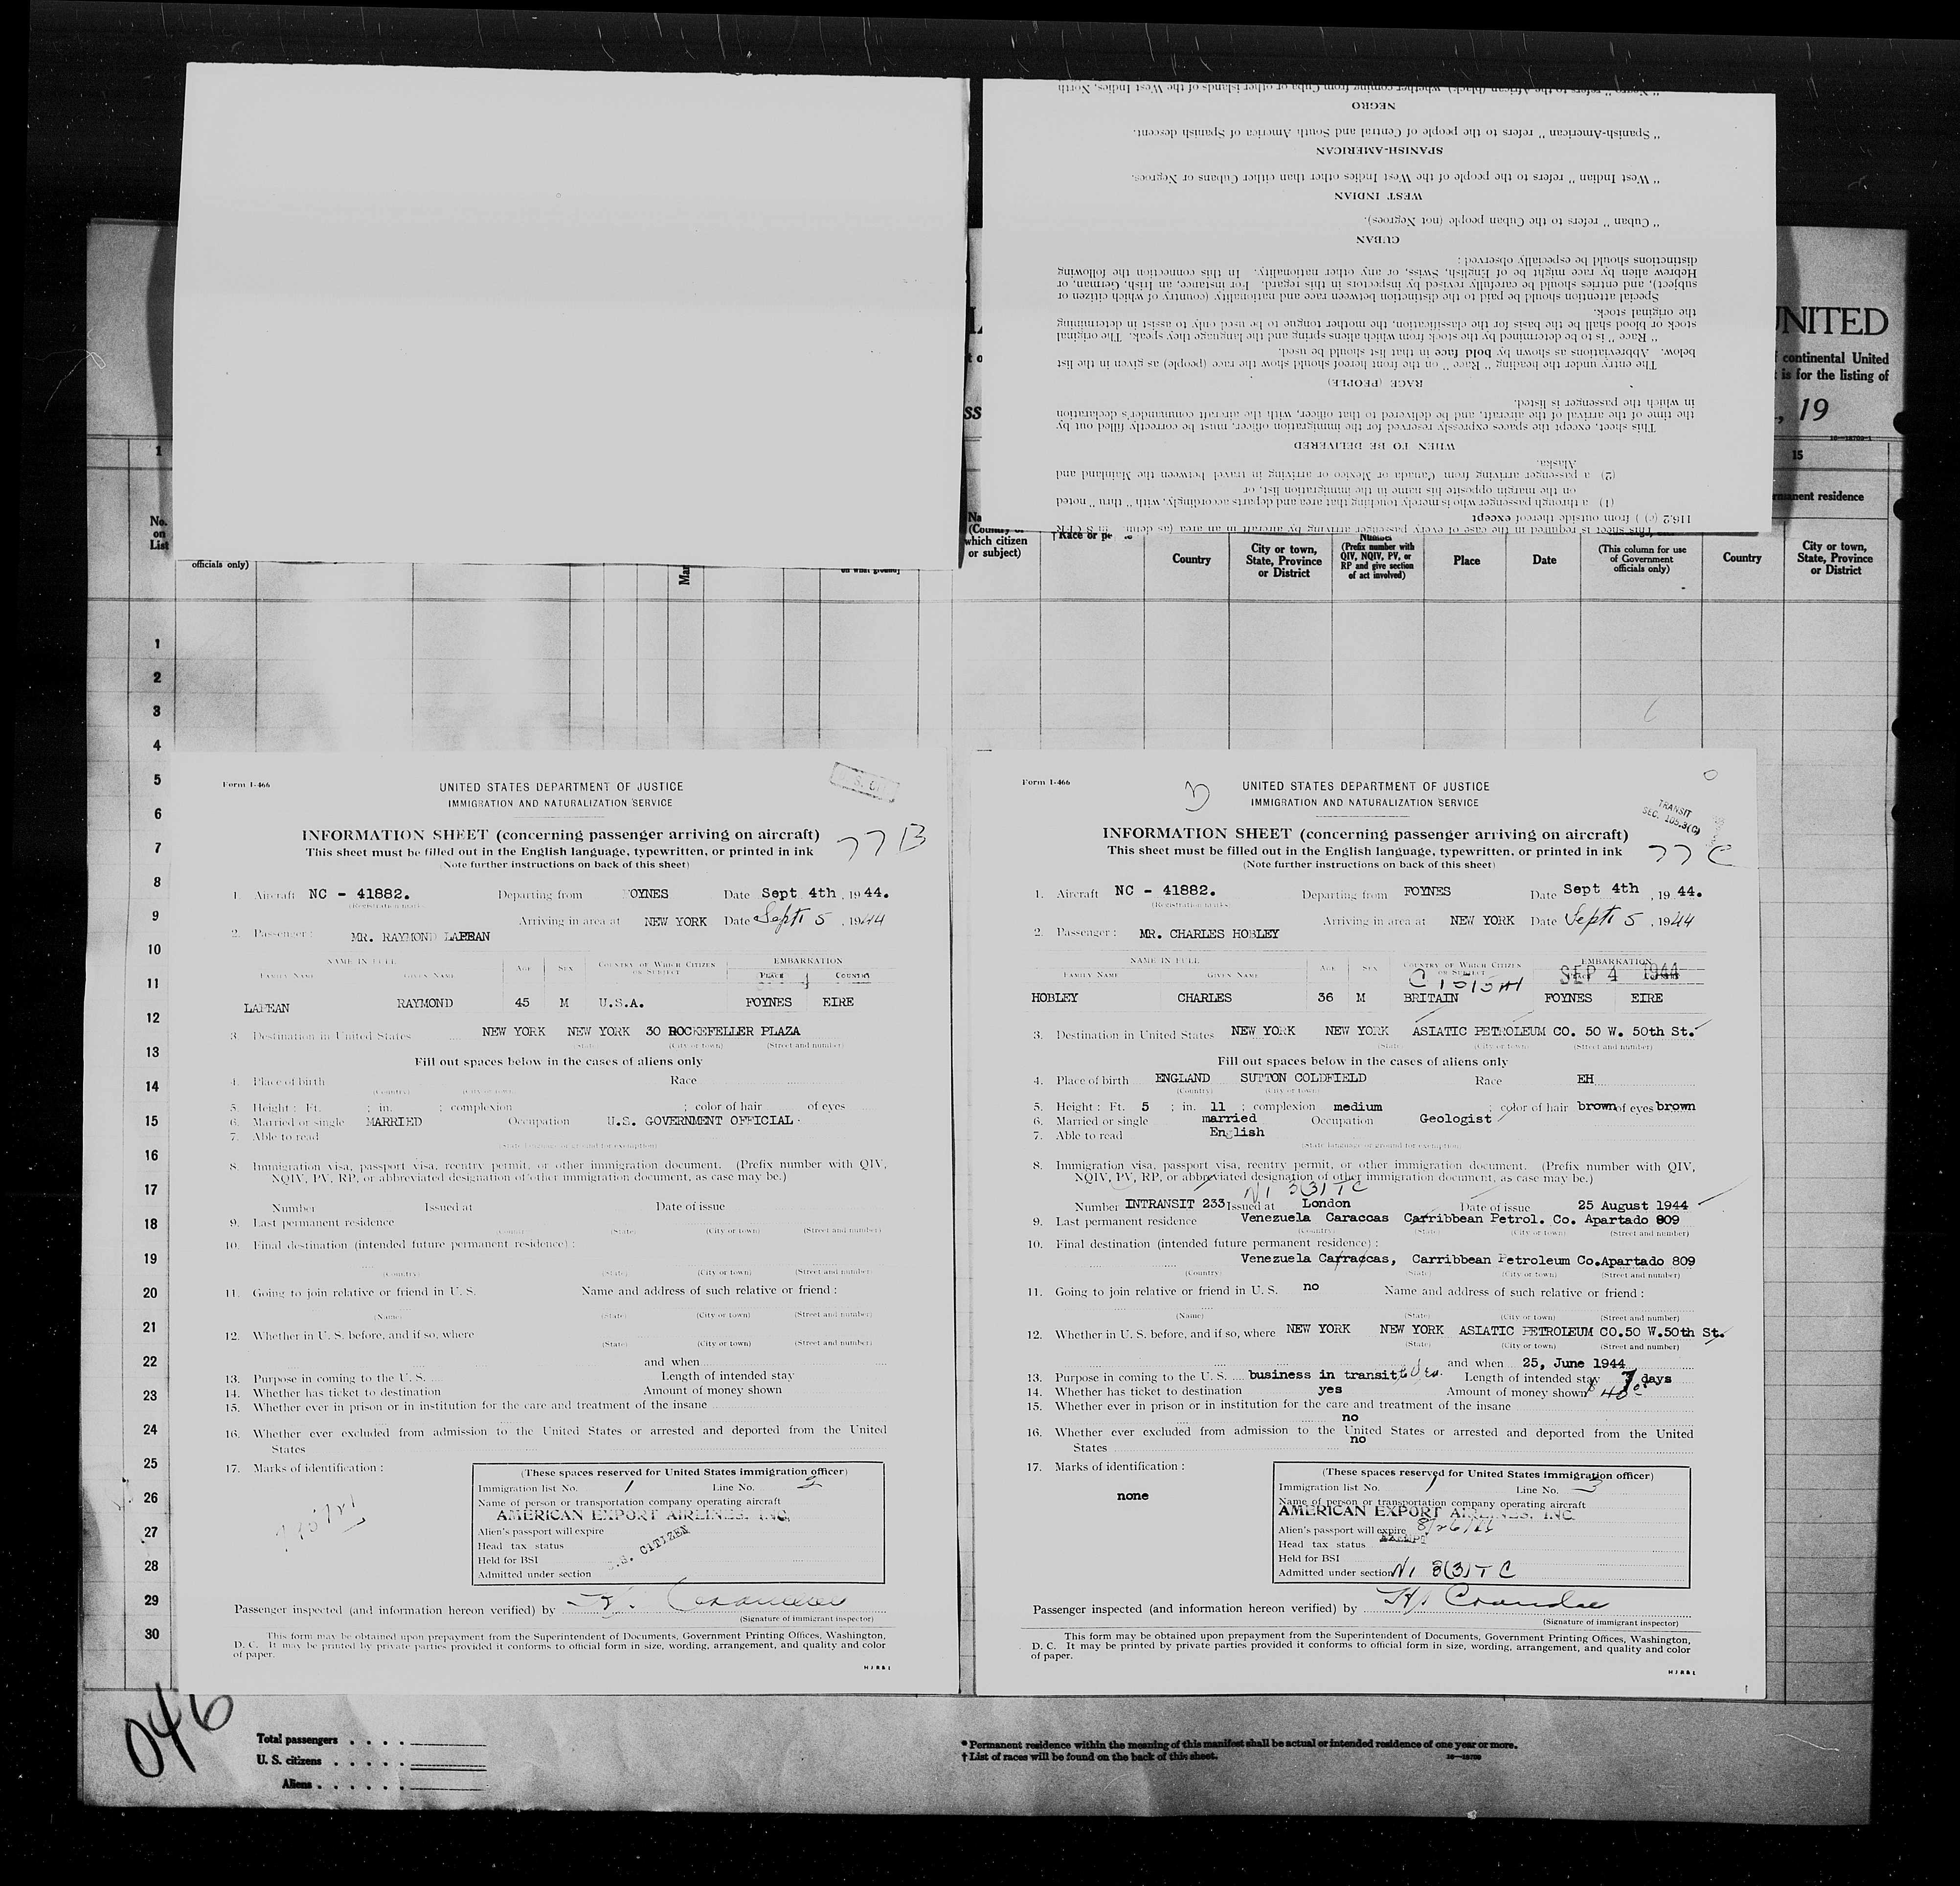 " Negro " refers to the African (black) whether coming from Cuba or other islands of the West Indies, North
NEGRO
" Spanish-American " refers to the people of Central and South America of Spanish descent.
SPANISH-AMERICAN
" West Indian " refers to the people of the West Indies other than either Cubans or Negroes.
WEST INDIAN
" Cuban " refers to the Cuban people (not Negroes).
CUBAN
distinctions should be especially observed :
Hebrew alien by race might be of English, Swiss, or any other nationality. In this connection the following
subject), and entries should be carefully revised by inspectors in this regard. For instance, an Irish, German, or
Special attention should be paid to the distinction between race and nationality (country of which citizen or
the original stock.
stock or blood shall be the basis for the classification, the mother tongue to be used only to assist in determining
" Race " is to be determined by the stock from which aliens spring and the language they speak. The original
below. Abbreviations as shown by bold face in that list should be used.
The entry under the heading " Race " on the front hereof should show the race (people) as given in the list
RACE (PEOPLE)
in which the passenger is listed.
the time of the arrival of the aircraft, and be delivered to that officer, with the aircraft commander's declaration
This sheet, except the spaces expressly reserved for the immigration officer, must be correctly filled out by
WHEN TO BE DELIVERED
Alaska.
(2) a passenger arriving from Canada or Mexico or arriving in travel between the Mainland and
on the margin opposite his name in the immigration list, or
(1) a through passenger who is merely touching that area and departs accordingly, with " thru " noted
116.2 (c) ) from outside thereof except
This sheet is required in the case of every passenger arriving by aircraft in an area (as defin in 8 CFR
UNITED
continental United
is for the listing of
, 19
1
15
permanent residence
No.
on
List
officials only)
which citizen
or subject)
Country
City or town,
State, Province
or District
Number
(Prefix number with
QIV, NQIV, PV, or
RP and give section
of act involved)
Place
Date
(This column for use
of Government
officials only)
Country
City or town,
State, Province
or District
1
2
3
4
5
6
7
8
9
10
11
12
13
14
15
16
17
18
19
20
21
22
23
24
25
26
27
28
29
30
Form I-466
UNITED STATES DEPARTMENT OF JUSTICE
IMMIGRATION AND NATURALIZATION SERVICE
INFORMATION SHEET (concerning passenger arriving on aircraft)
77 B
This sheet must be filled out in the English language, typewritten, or printed in ink
(Note further instructions on back of this sheet)
1. Aircraft NC - 41882. Departing from FOYNES Date Sept 4th , 19 44.
(Registration marks)
Arriving in area at NEW YORK Date Sept 5 , 1944
2. Passenger : MR. RAYMOND LAFEAN
NAME IN FULL AGE SEX COUNTRY OF WHICH CITIZEN OR SUBJECT EMBARKATION
FAMILY NAME GIVEN NAME PLACE COUNTRY
LAFEAN RAYMOND 45 M U.S.A. FOYNES EIRE
3. Destination in United States NEW YORK NEW YORK 30 ROCKEFELLER PLAZA
(State) (City or town) (Street and number)
Fill out spaces below in the cases of aliens only
4. Place of birth Race
(Country) (City or town)
5. Height : Ft. ; in. ; complexion ; color of hair of eyes
6. Married or single MARRIED Occupation U.S. GOVERNMENT OFFICIAL
7. Able to read
(State language or ground for exemption)
8. Immigration visa, passport visa, reentry permit, or other immigration document. (Prefix number with QIV,
NQIV, PV, RP, or abbreviated designation of other immigration document, as case may be.)
Number Issued at Date of issue
9. Last permanent residence
(Country) (State) (City or town) (Street and number)
10. Final destination (intended future permanent residence) :
(Country) (State) (City or town) (Street and number)
11. Going to join relative or friend in U. S. Name and address of such relative or friend :
(Name) (State) (City or town) (Street and number)
12. Whether in U. S. before, and if so, where
(State) (City or town) (Street and number)
and when
13. Purpose in coming to the U. S. Length of intended stay
14. Whether has ticket to destination Amount of money shown
15. Whether ever in prison or in institution for the care and treatment of the insane
16. Whether ever excluded from admission to the United States or arrested and deported from the United
States
17. Marks of identification :
(These spaces reserved for United States immigration officer)
Immigration list No. 1 Line No. 2
Name of person or transportation company operating aircraft
AMERICAN EXPORT AIRLINES, INC.
Alien's passport will expire
Head tax status
U.S. CITIZEN
Held for BSI
Admitted under section
Passenger inspected (and information hereon verified) by
(Signature of immigrant inspector)
This form may be obtained upon prepayment from the Superintendent of Documents, Government Printing Offices, Washington,
D. C. It may be printed by private parties provided it conforms to official form in size, wording, arrangement, and quality and color
of paper.
Form I-466
UNITED STATES DEPARTMENT OF JUSTICE
IMMIGRATION AND NATURALIZATION SERVICE
TRANSIT
SEC. 105.3(C)
INFORMATION SHEET (concerning passenger arriving on aircraft)
77 C
This sheet must be filled out in the English language, typewritten, or printed in ink
(Note further instructions on back of this sheet)
1. Aircraft NC - 41882. Departing from FOYNES Date Sept 4th , 19 44.
(Registration marks)
Arriving in area at NEW YORK Date Sept 5 , 1944
2. Passenger : MR. CHARLES HOBLEY
NAME IN FULL AGE SEX COUNTRY OF WHICH CITIZEN OR SUBJECT EMBARKATION
SEP 4 1944
FAMILY NAME GIVEN NAME
HOBLEY CHARLES 36 M BRITAIN FOYNES EIRE
3. Destination in United States NEW YORK NEW YORK ASIATIC PETROLEUM CO. 50 W. 50th St.
(State) (City or town) (Street and number)
Fill out spaces below in the cases of aliens only
4. Place of birth ENGLAND SUTTON COLDFIELD Race EH
(Country) (City or town)
5. Height : Ft. 5 ; in. 11 ; complexion medium ; color of hair brown of eyes brown
6. Married or single married Occupation Geologist
7. Able to read English
(State language or ground for exemption)
8. Immigration visa, passport visa, reentry permit, or other immigration document. (Prefix number with QIV,
NQIV, PV, RP, or abbreviated designation of other immigration document, as case may be.)
NI 3(3) TC
Number INTRANSIT 233 Issued at London Date of issue 25 August 1944
9. Last permanent residence Venezuela Caraccas Carribbean Petrol. Co. Apartado 809
(Country) (State) (City or town) (Street and number)
10. Final destination (intended future permanent residence) :
Venezuela Carraccas, Carribbean Petroleum Co.Apartado 809
(Country) (State) (City or town) (Street and number)
11. Going to join relative or friend in U. S. no Name and address of such relative or friend :
(Name) (State) (City or town) (Street and number)
12. Whether in U. S. before, and if so, where NEW YORK NEW YORK ASIATIC PETROLEUM CO.50 W.50th St.
(State) (City or town) (Street and number)
and when 25, June 1944
13. Purpose in coming to the U. S. business in transit Length of intended stay 7 days
14. Whether has ticket to destination yes Amount of money shown
15. Whether ever in prison or in institution for the care and treatment of the insane
no
16. Whether ever excluded from admission to the United States or arrested and deported from the United
States no
17. Marks of identification :
none
(These spaces reserved for United States immigration officer)
Immigration list No. 1 Line No. 3
Name of person or transportation company operating aircraft
AMERICAN EXPORT AIRLINES, INC.
Alien's passport will expire
Head tax status EXEMPT
Held for BSI
Admitted under section NI 3(3) TC
Passenger inspected (and information hereon verified) by
(Signature of immigrant inspector)
This form may be obtained upon prepayment from the Superintendent of Documents, Government Printing Offices, Washington,
D. C. It may be printed by private parties provided it conforms to official form in size, wording, arrangement, and quality and color
of paper.
046
Total passengers . . . .
U. S. citizens . . . . .
Aliens . . . . . .
* Permanent residence within the meaning of this manifest shall be actual or intended residence of one year or more.
† List of races will be found on the back of this sheet.